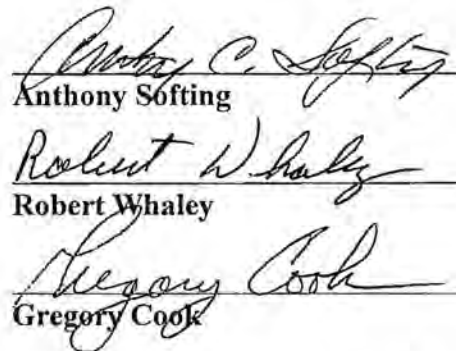 Anthony C. Softing
Anthony Softing
Robert Whaley
Robert Whaley
Gregory Cook
Gregory Cook